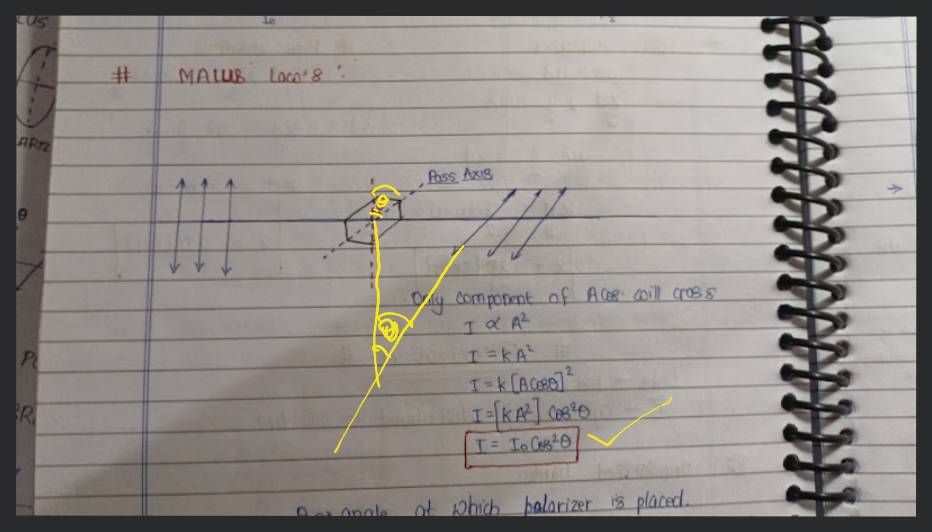 I₀
# MALUS Law's :
ARIZ
θ
Pass Axis
θ
θ
Only component of Acos will cross
I ∝ A²
I = kA²
I = k[Acosθ]²
I = [kA²] Cos²θ
I = I₀ Cos²θ
angle at which polarizer is placed.